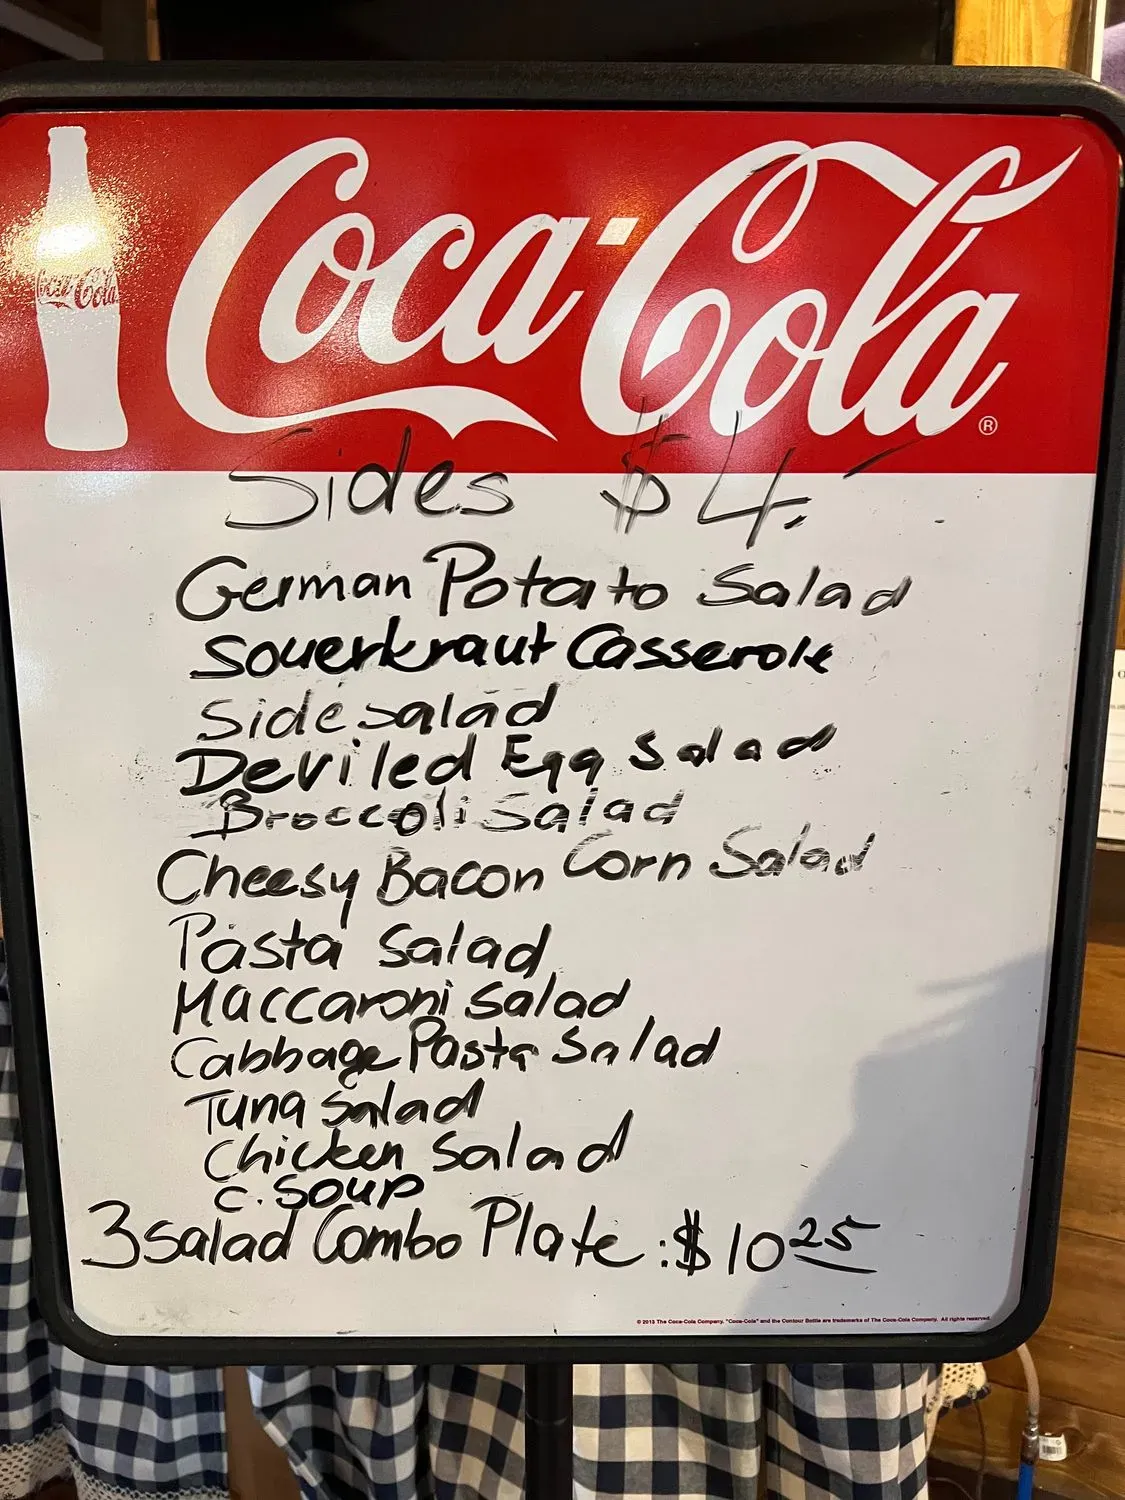 Coca-Cola ®
Coca-Cola
Sides $4.-
German Potato Salad
Souerkraut Casserole
Side salad
Deviled Egg Salad
Broccoli Salad
Cheesy Bacon Corn Salad
Pasta Salad
Maccaroni Salad
Cabbage Pasta Salad
Tuna Salad
Chicken Salad
C. Soup
3 Salad Combo Plate: $10 25
© 2013 The Coca-Cola Company. "Coca-Cola" and the Contour Bottle are trademarks of The Coca-Cola Company. All rights reserved.